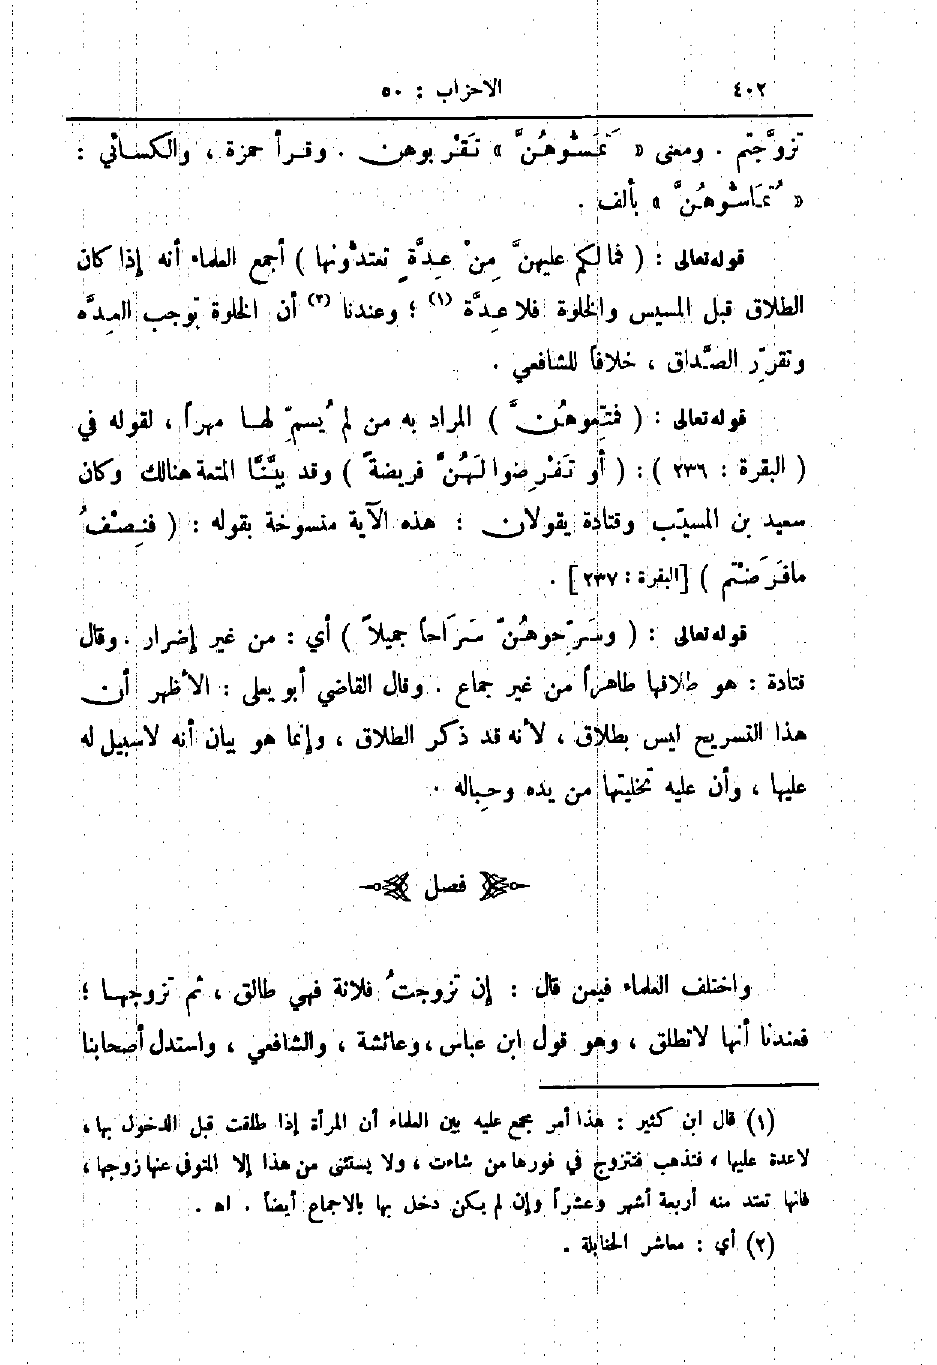 ٤٠٢ الاحزاب : ٥٠
تزوَّجتم . ومعنى « تَمَسُّوهُنَّ » تَقْربوهن . وقرأ حمزة ، والكسائي :
« تُمَاسُّوهُنَّ » بألف .
قوله تعالى : ( فما لكم عليهنَّ مِنْ عِدَّةٍ تعتدُّونها ) أجمع العلماء أنه إذا كان
الطلاق قبل المسيس والخلوة فلا عِدَّة (١) ؛ وعندنا (٢) أن الخلوة توجب العِدَّه
وتقرِّر الصَّداق ، خلافاً للشافعي .
قوله تعالى : ( فمتِّعوهُنَّ ) المراد به من لم يُسمِّ لهـا مهراً ، لقوله في
( البقرة : ٢٣٦ ) : ( أو تَفْرِضوا لَهُنَّ فريضةً ) وقد بيَّنَّا المتعة هنالك وكان
سعيد بن المسيّب وقتادة يقولان : هذه الآية منسوخة بقوله : ( فنِصْفُ
مافَرَضْتم ) [البقرة : ٢٣٧] .
قوله تعالى : ( وسَرِّحوهُنّ سَرَاحاً جميلاً ) أي : من غير إضرار . وقال
قتادة : هو طلاقها طاهراً من غير جماع . وقال القاضي أبو يعلى : الأظهر أن
هذا التسريح ليس بطلاق ، لأنه قد ذكر الطلاق ، وإنما هو بيان أنه لاسبيل له
عليها ، وأن عليه تخليتها من يده وحِباله .
فصل
واختلف العلماء فيمن قال : إن تزوجتُ فلانة فهي طالق ، ثم تزوجهـا ؛
فعندنا أنها لاتطلق ، وهو قول ابن عباس ، وعائشة ، والشافعي ، واستدل أصحابنا
(١) قال ابن كثير : هذا أمر مجمع عليه بين العلماء أن المرأة إذا طلقت قبل الدخول بها ،
لاعدة عليها ، فتذهب فتتزوج في فورها من شاءت ، ولا يستثنى من هذا إلا المتوفى عنها زوجها ،
فانها تعتد منه أربعة أشهر وعشراً وإن لم يكن دخل بها بالاجماع أيضاً . اه .
(٢) أي : معاشر الحنابلة .